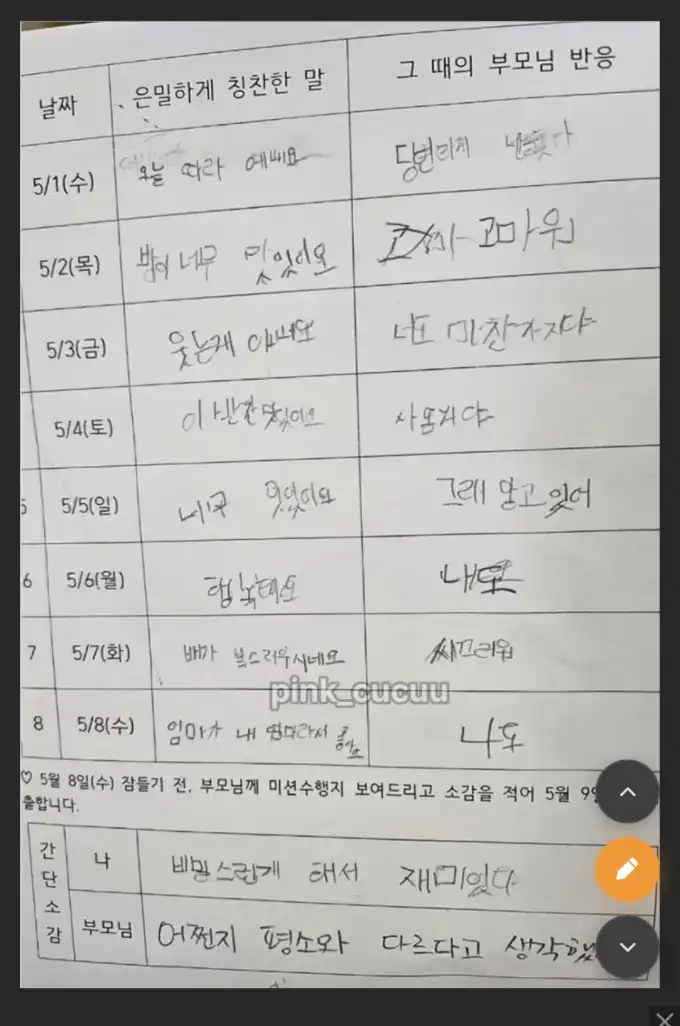 날짜 은밀하게 칭찬한 말 그 때의 부모님 반응
5/1(수) 오늘 따라 예뻐요
5/2(목) 밥이 너무 맛있어요 고마워
5/3(금) 웃는게 너도 마찬가지다
5/4(토) 이 맛있어요
5/5(일) 그래 알고 있어
6 5/6(월) 행복해요 내도
7 5/7(화) 배가 시네요 씨끄러워
8 5/8(수) 엄마가 내 엄마라서 좋아요 나도
pink_cucuu
♡ 5월 8일(수) 잠들기 전, 부모님께 미션수행지 보여드리고 소감을 적어 5월 9일
출합니다.
간단소감
나 비밀스럽게 해서 재미있다
부모님 어쩐지 평소와 다르다고 생각했